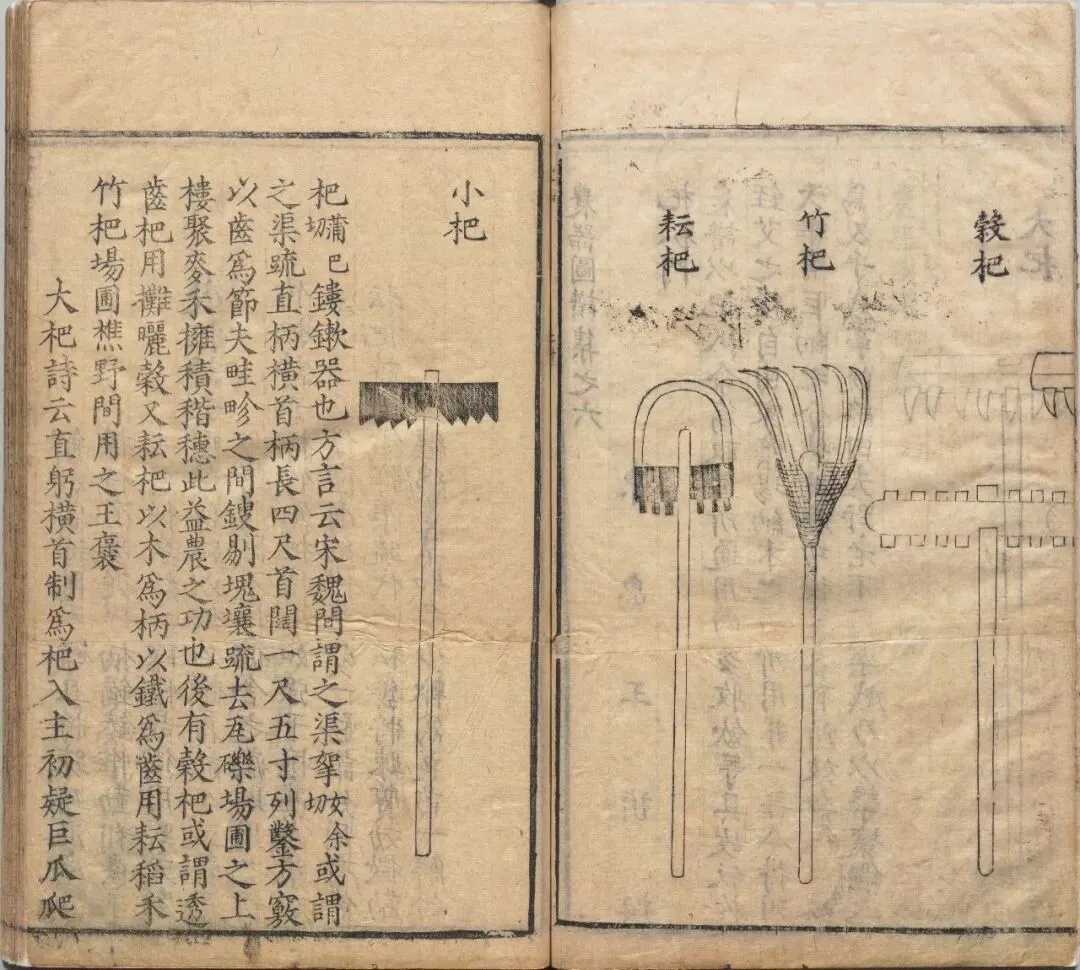 穀杷
竹杷
耘杷
小杷
杷蒲巴切鏤鏉器也方言云宋魏間謂之渠挐女余切或謂
之渠疏直柄橫首柄長四尺首闊一尺五寸列鑿方竅
以齒爲節夫畦畛之間鎪剔塊壤疏去瓦礫場圃之上
樓聚麥禾擁積稭穗此益農之功也後有穀杷或謂透
齒杷用攤曬穀又耘杷以木爲柄以鐵爲齒用耘稻禾
竹杷場圃樵野間用之王褒
大杷詩云直躬橫首制爲杷入主初疑巨瓜爬